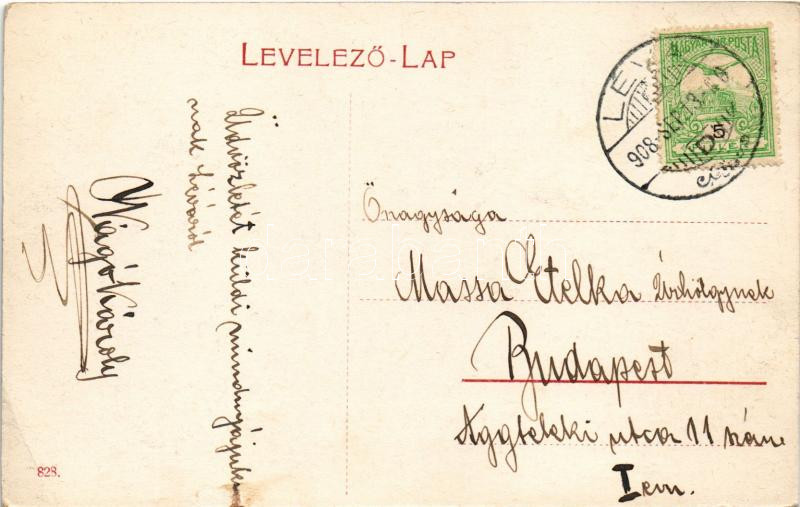 LEVELEZŐ-LAP
MAGYAR KIR. POSTA
5
908 SEP
Üdvözletét küldi mindnyájuk-
nak Léváról
Vágó Károly
Őnagysága
Massa Etelka Úrhölgynek
Budapest
Aggteleki utca 11 szám
I em.
828.